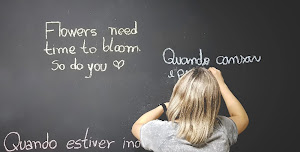 Flowers need
time to bloom.
So do you ♡
Quando cansar
Quando estiver